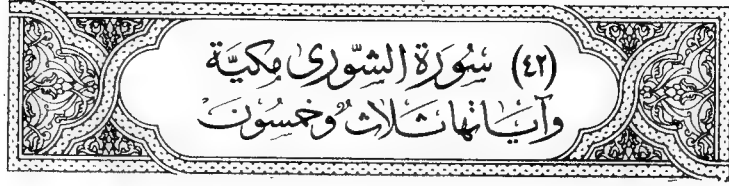 (٤٢) سُورَة الشّورىٰ مكيَّة
وَآيَاتها ثَلاثٌ وَخَمسُونَ